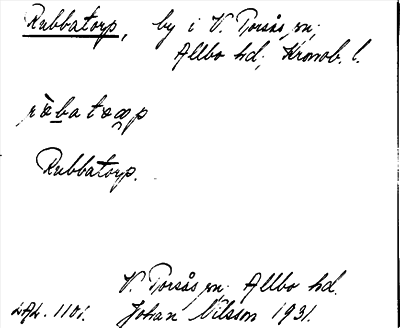 Rubbatorp, by i V. Torsås sn;
Allbo hd; Kronob. l.
Rubbatorp.
V. Torsås sn. Allbo hd.
LAL. 1101. Johan Nilsson 1931.